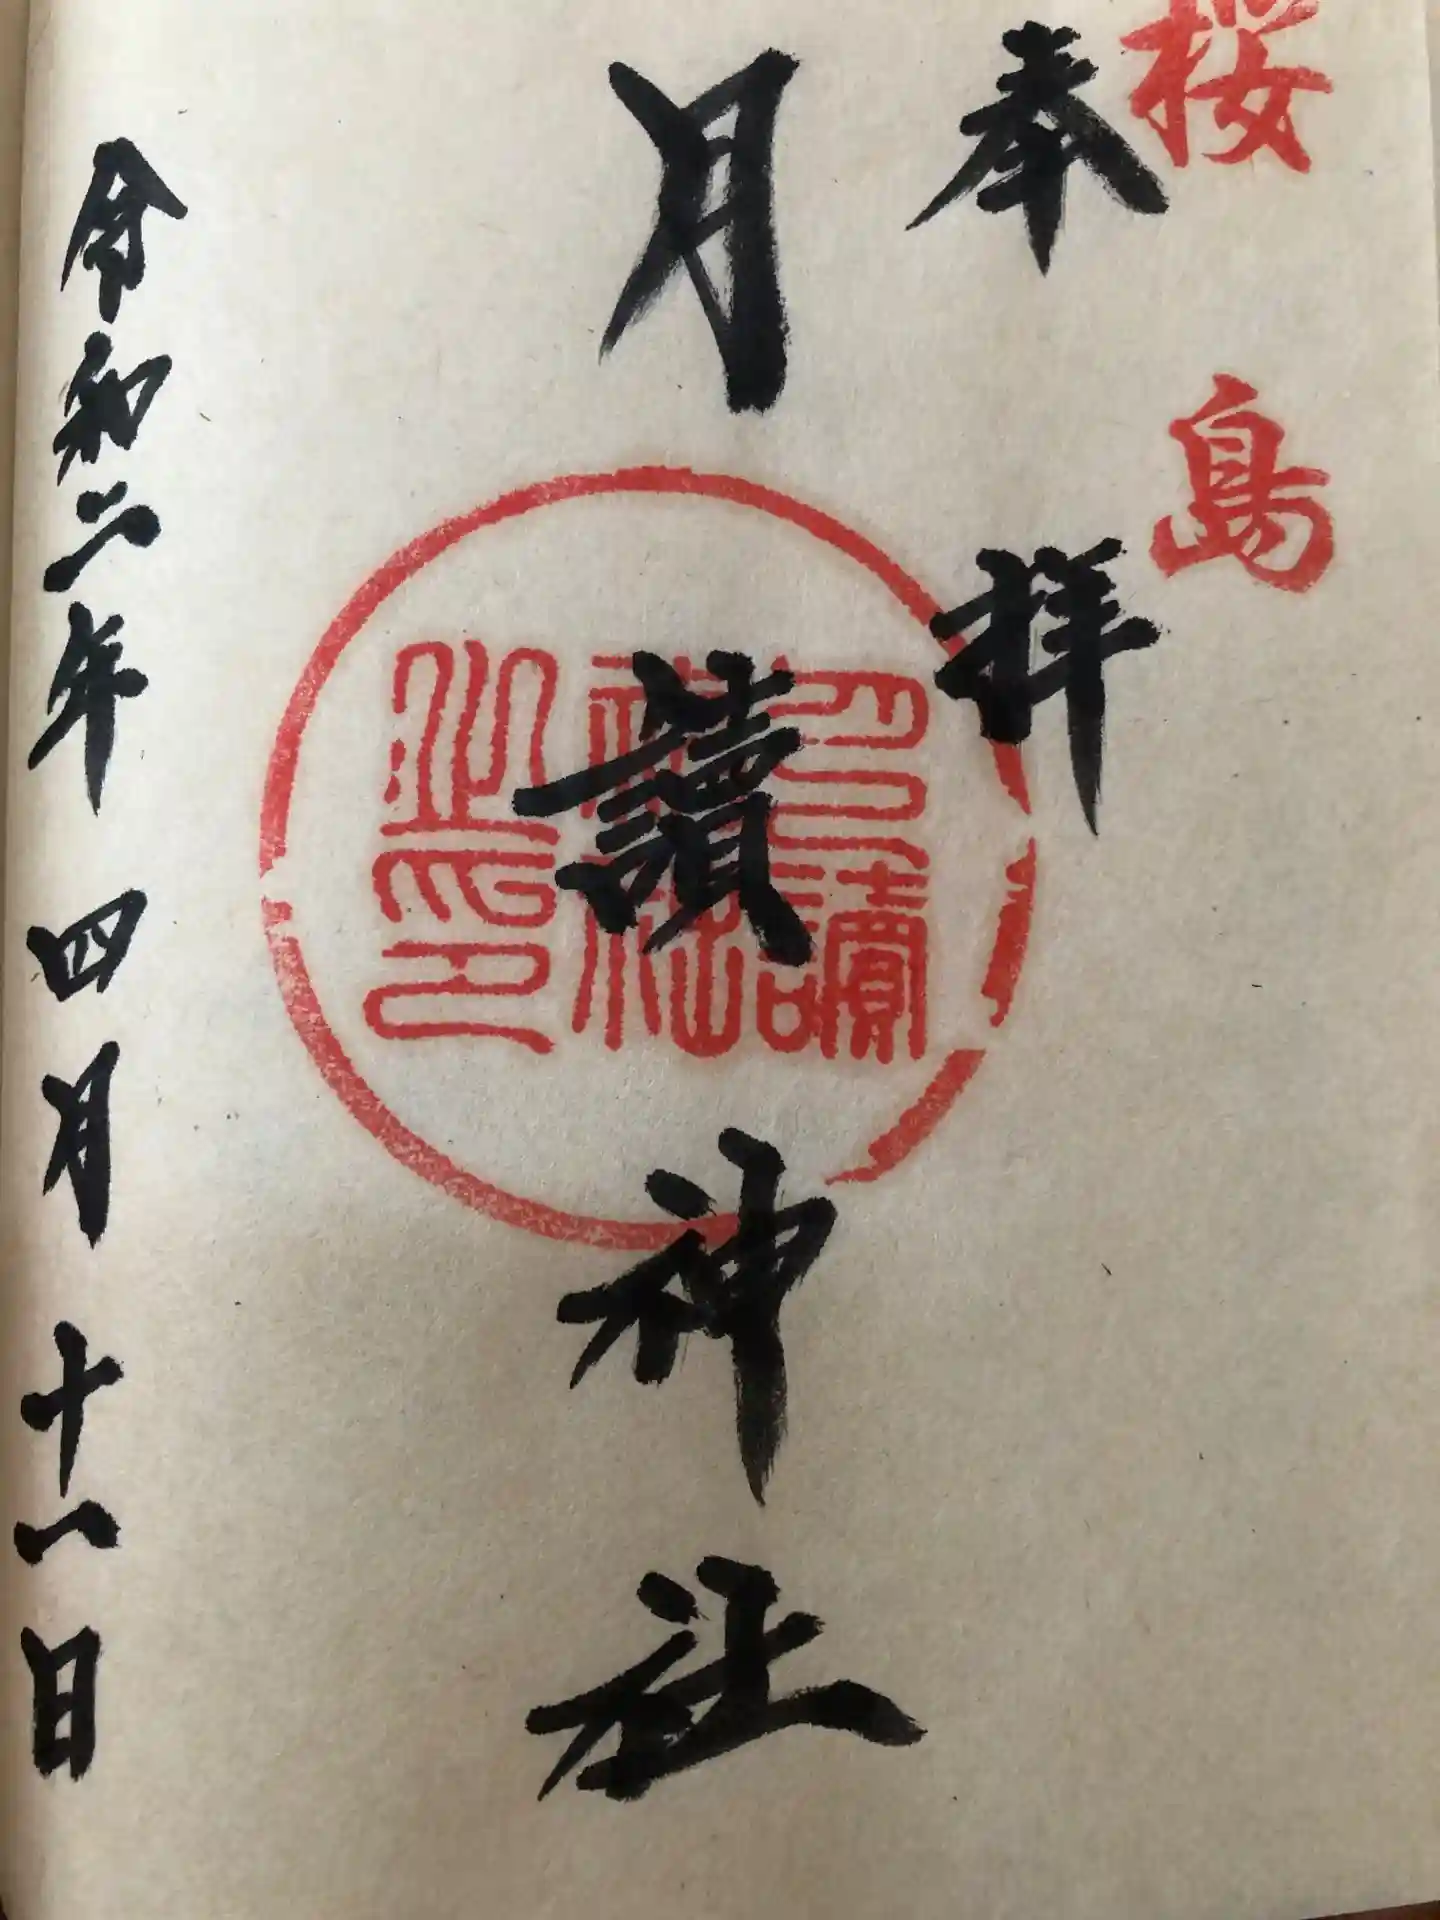 桜島
奉拝
月讀神社
月讀神社之印
令和二年四月十一日